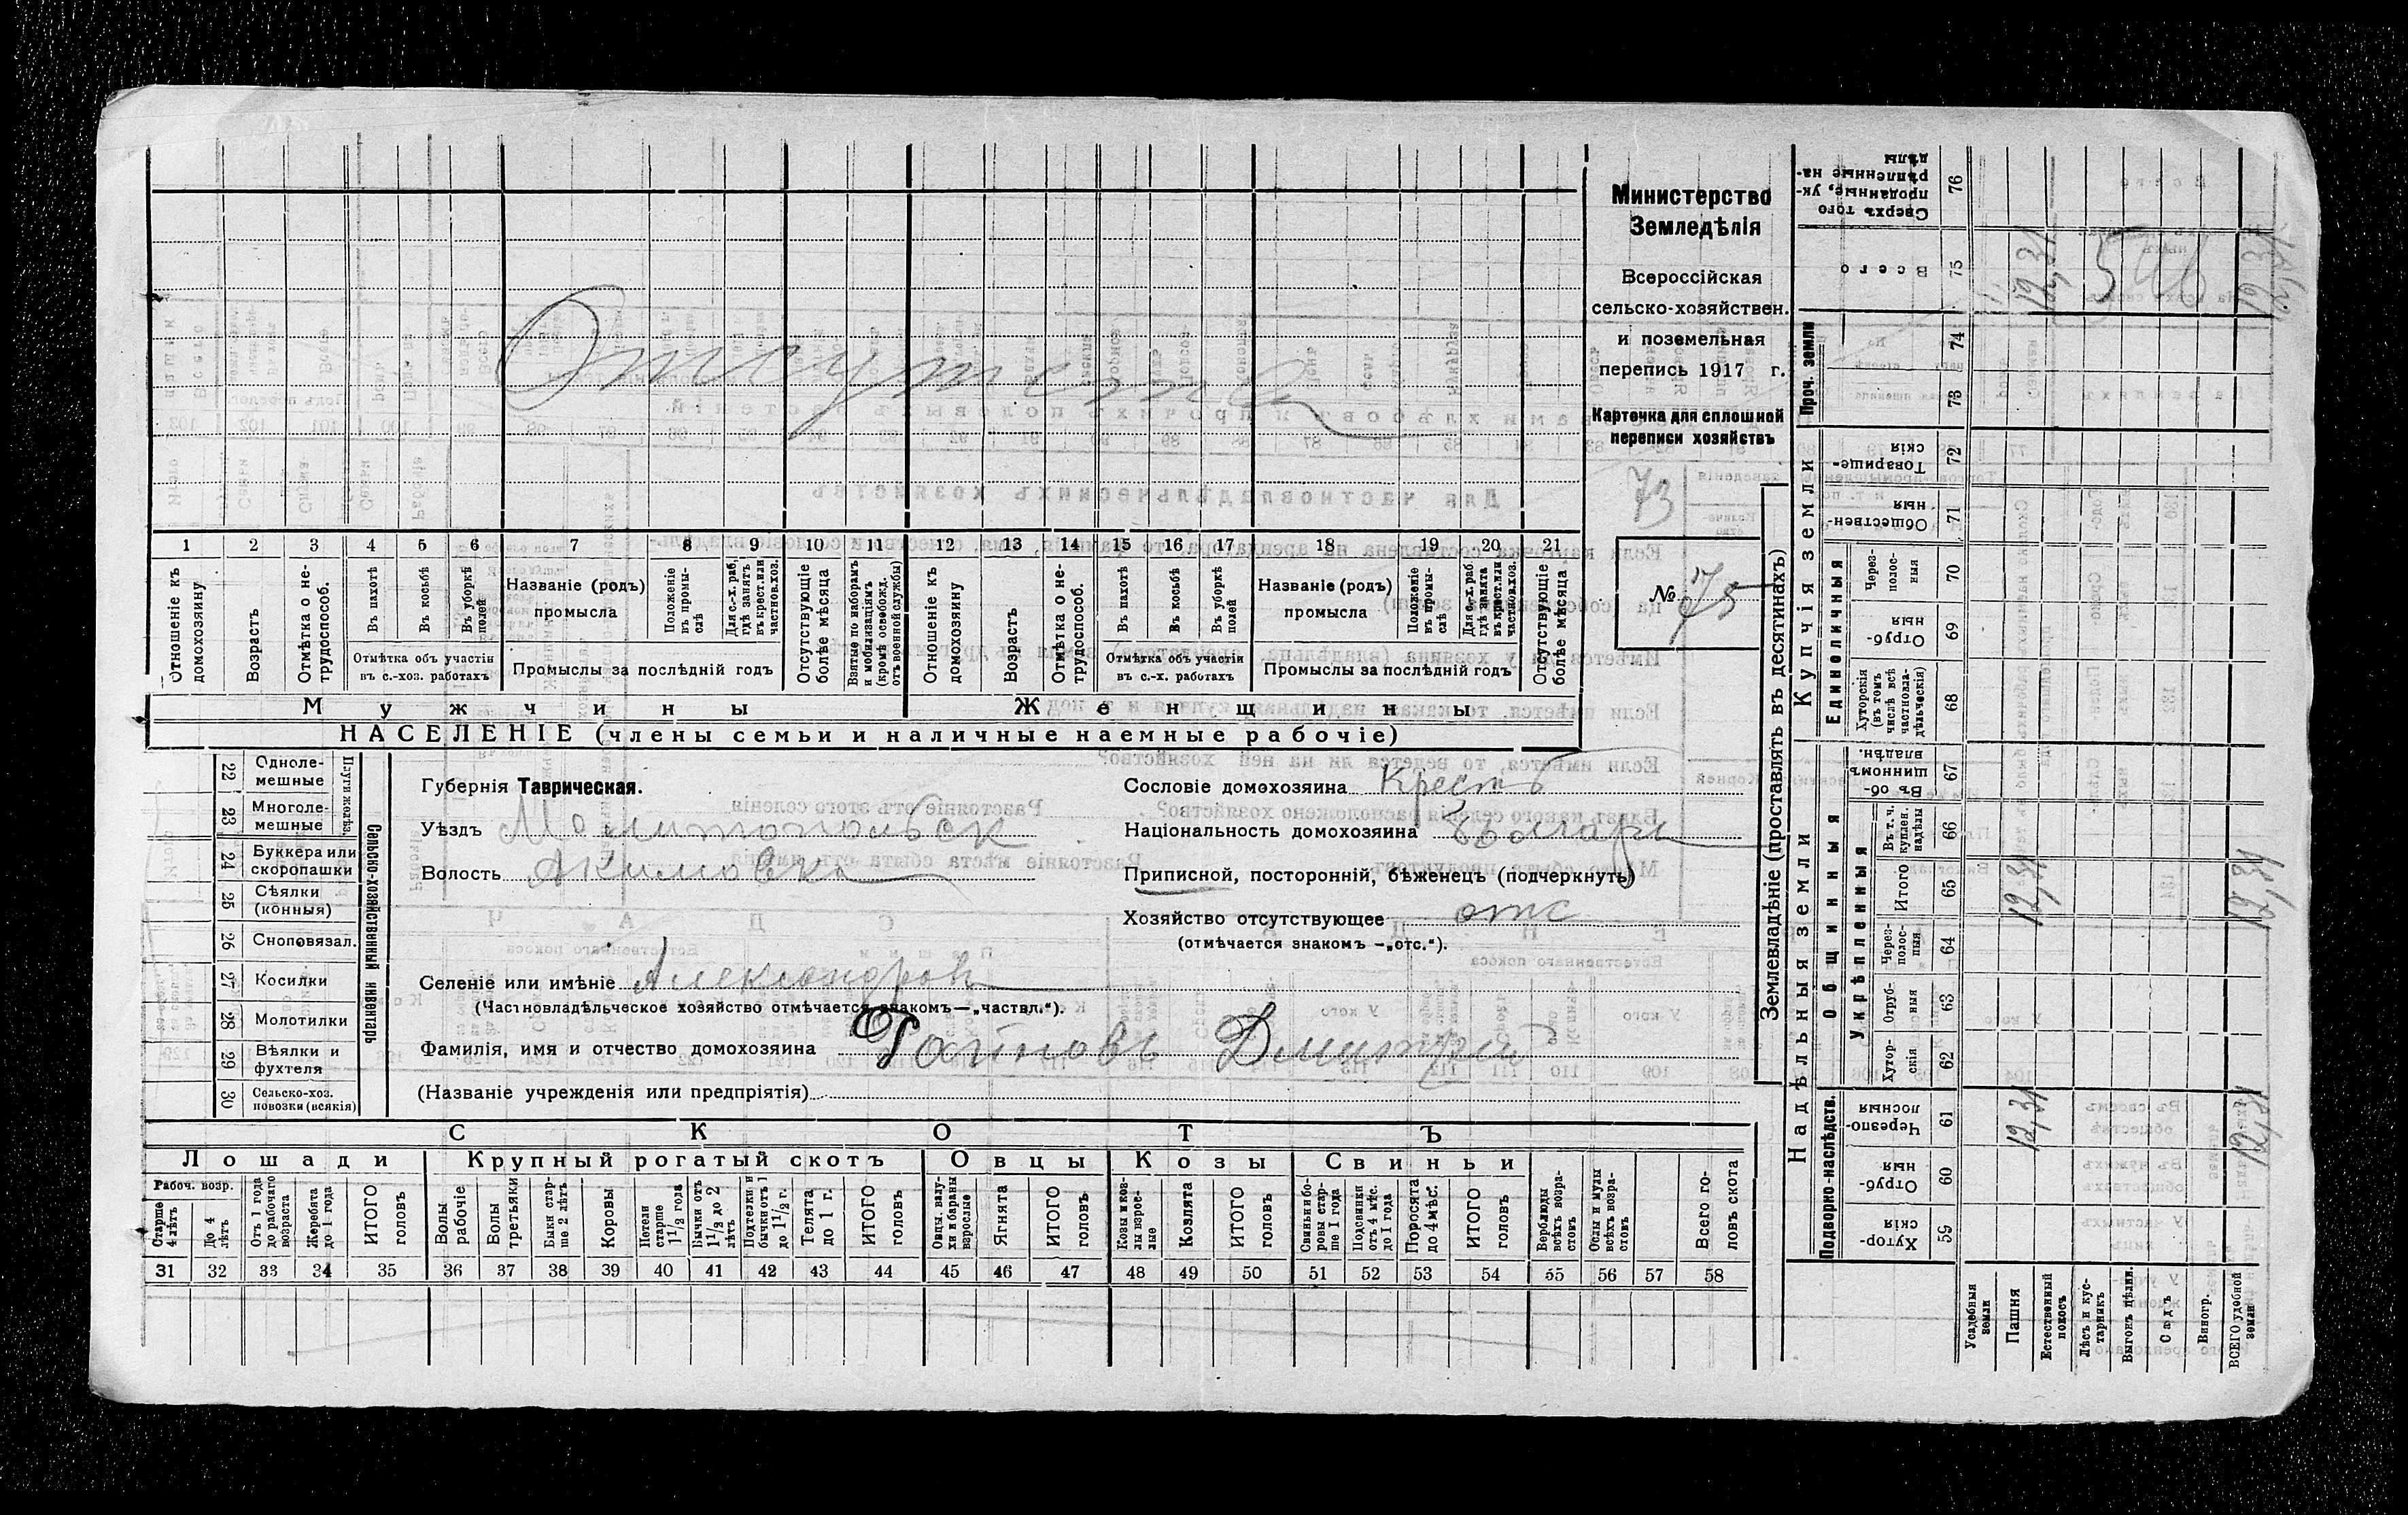 Министерство
Земледѣлія
Всероссійская
сельско-хозяйствен.
и поземельная
перепись 1917 г.
Карточка для сплошной
переписи хозяйствъ
73
№ 75
Отсутств
1 2 3 4 5 6 7 8 9 10 11 12 13 14 15 16 17 18 19 20 21
Отношеніе къ домохозяину
Возрастъ
Отмѣтка о не-трудоспособ.
Въ пахотѣ
Въ косьбѣ
Въ уборкѣ полей
Отмѣтка объ участіи
въ с.-хоз. работахъ
Названіе (родъ)
промысла
Положеніе въ промы-слѣ
Для с.-х. раб., гдѣ занятъ въ крест. или частнов. хоз.
Промыслы за послѣдній годъ
Отсутствующіе болѣе мѣсяца
Взятые по наборамъ и мобилизаціямъ (кромѣ освобожд. отъ военной службы)
Отношеніе къ домохозяину
Возрастъ
Отмѣтка о не-трудоспособ.
Въ пахотѣ
Въ косьбѣ
Въ уборкѣ полей
Отмѣтка объ участіи
въ с.-х. работахъ
Названіе (родъ)
промысла
Положеніе въ промы-слѣ
Для с.-х. раб. гдѣ занята въ крест. или частнов. хоз.
Промыслы за послѣдній годъ
Отсутствующіе болѣе мѣсяца
Мужчины Женщины
НАСЕЛЕНІЕ (члены семьи и наличные наемные рабочіе)
Сельско-хозяйственный инвентарь
Плуги желѣз.
22 Одноле-мешные
23 Многоле-мешные
24 Буккера или скоропашки
25 Сѣялки (конныя)
26 Сноповязал.
27 Косилки
28 Молотилки
29 Вѣялки и фухтеля
30 Сельско-хоз. повозки (всякія)
Губернія Таврическая.
Уѣздъ Мелитопольск
Волость Акимовка
Сословіе домохозяина Крест
Національность домохозяина Болгары
Приписной, посторонній, бѣженецъ (подчеркнуть)
Хозяйство отсутствующее отс
(отмѣчается знакомъ —„отс.“).
Селеніе или имѣніе Александров
(Частновладѣльческое хозяйство отмѣчается знакомъ—„частвл.“).
Фамилія, имя и отчество домохозяина Димитрій
(Названіе учрежденія или предпріятія)
СКОТЪ
Лошади Крупный рогатый скотъ Овцы Козы Свиньи
Рабоч. возр.
Старше 4 лѣтъ
До 4 лѣтъ
Отъ 1 года до рабочаго возраста
Жеребята до 1 года
ИТОГО головъ
Волы рабочіе
Волы третьяки
Быки стар-ше 2 лѣтъ
Коровы
Нетели старше 1 1/2 года
Бычки отъ 1 1/2 до 2 лѣтъ
Подтелки и бычки отъ 1 до 1 1/2 г.
Телята до 1 г.
ИТОГО головъ
Овцы, валу-хи и бараны взрослые
Ягнята
ИТОГО головъ
Козы и коз-лы взрос-лые
Козлята
ИТОГО головъ
Свиньи и бо-ровы стар-ше 1 года
Подсвинки отъ 4 мѣс. до 1 года
Поросята до 4 мѣс.
ИТОГО головъ
Верблюды всѣхъ возра-стовъ
Ослы и мулы всѣхъ возра-стовъ
Всего го-ловъ скота
31 32 33 34 35 36 37 38 39 40 41 42 43 44 45 46 47 48 49 50 51 52 53 54 55 56 57 58
Землевладѣніе (проставлять въ десятинахъ)
Надѣльныя земли
Купчія земли
Проч. земли
Подворно-наслѣдств.
Общинныя
Укрѣпленныя
Единоличныя
59 Хутор-скія
60 Отруб-ныя
61 Черезпо-лосныя
62 Хутор-скія
63 Отруб-ныя
64 Через-полос-ныя
65 Итого
66 Въ т. ч. куплен. надѣлы
67 Въ об-щинномъ владѣн.
68 Хуторскія (въ томъ числѣ всѣ частновла-дѣльческія)
69 Отруб-ныя
70 Через-полос-ныя
71 Обществен-ныя
72 Товарище-скія
73
74
75 Всего
76 Сверхъ того проданные, ук-рѣпленные на-дѣлы
Усадебныя земли
Пашня 12,31 12,31 12,31
Естественный покосъ
Лѣсъ и кус-тарникъ
Выгонъ дѣлин.
Садъ
Виногр.
ВСЕГО удобной земли